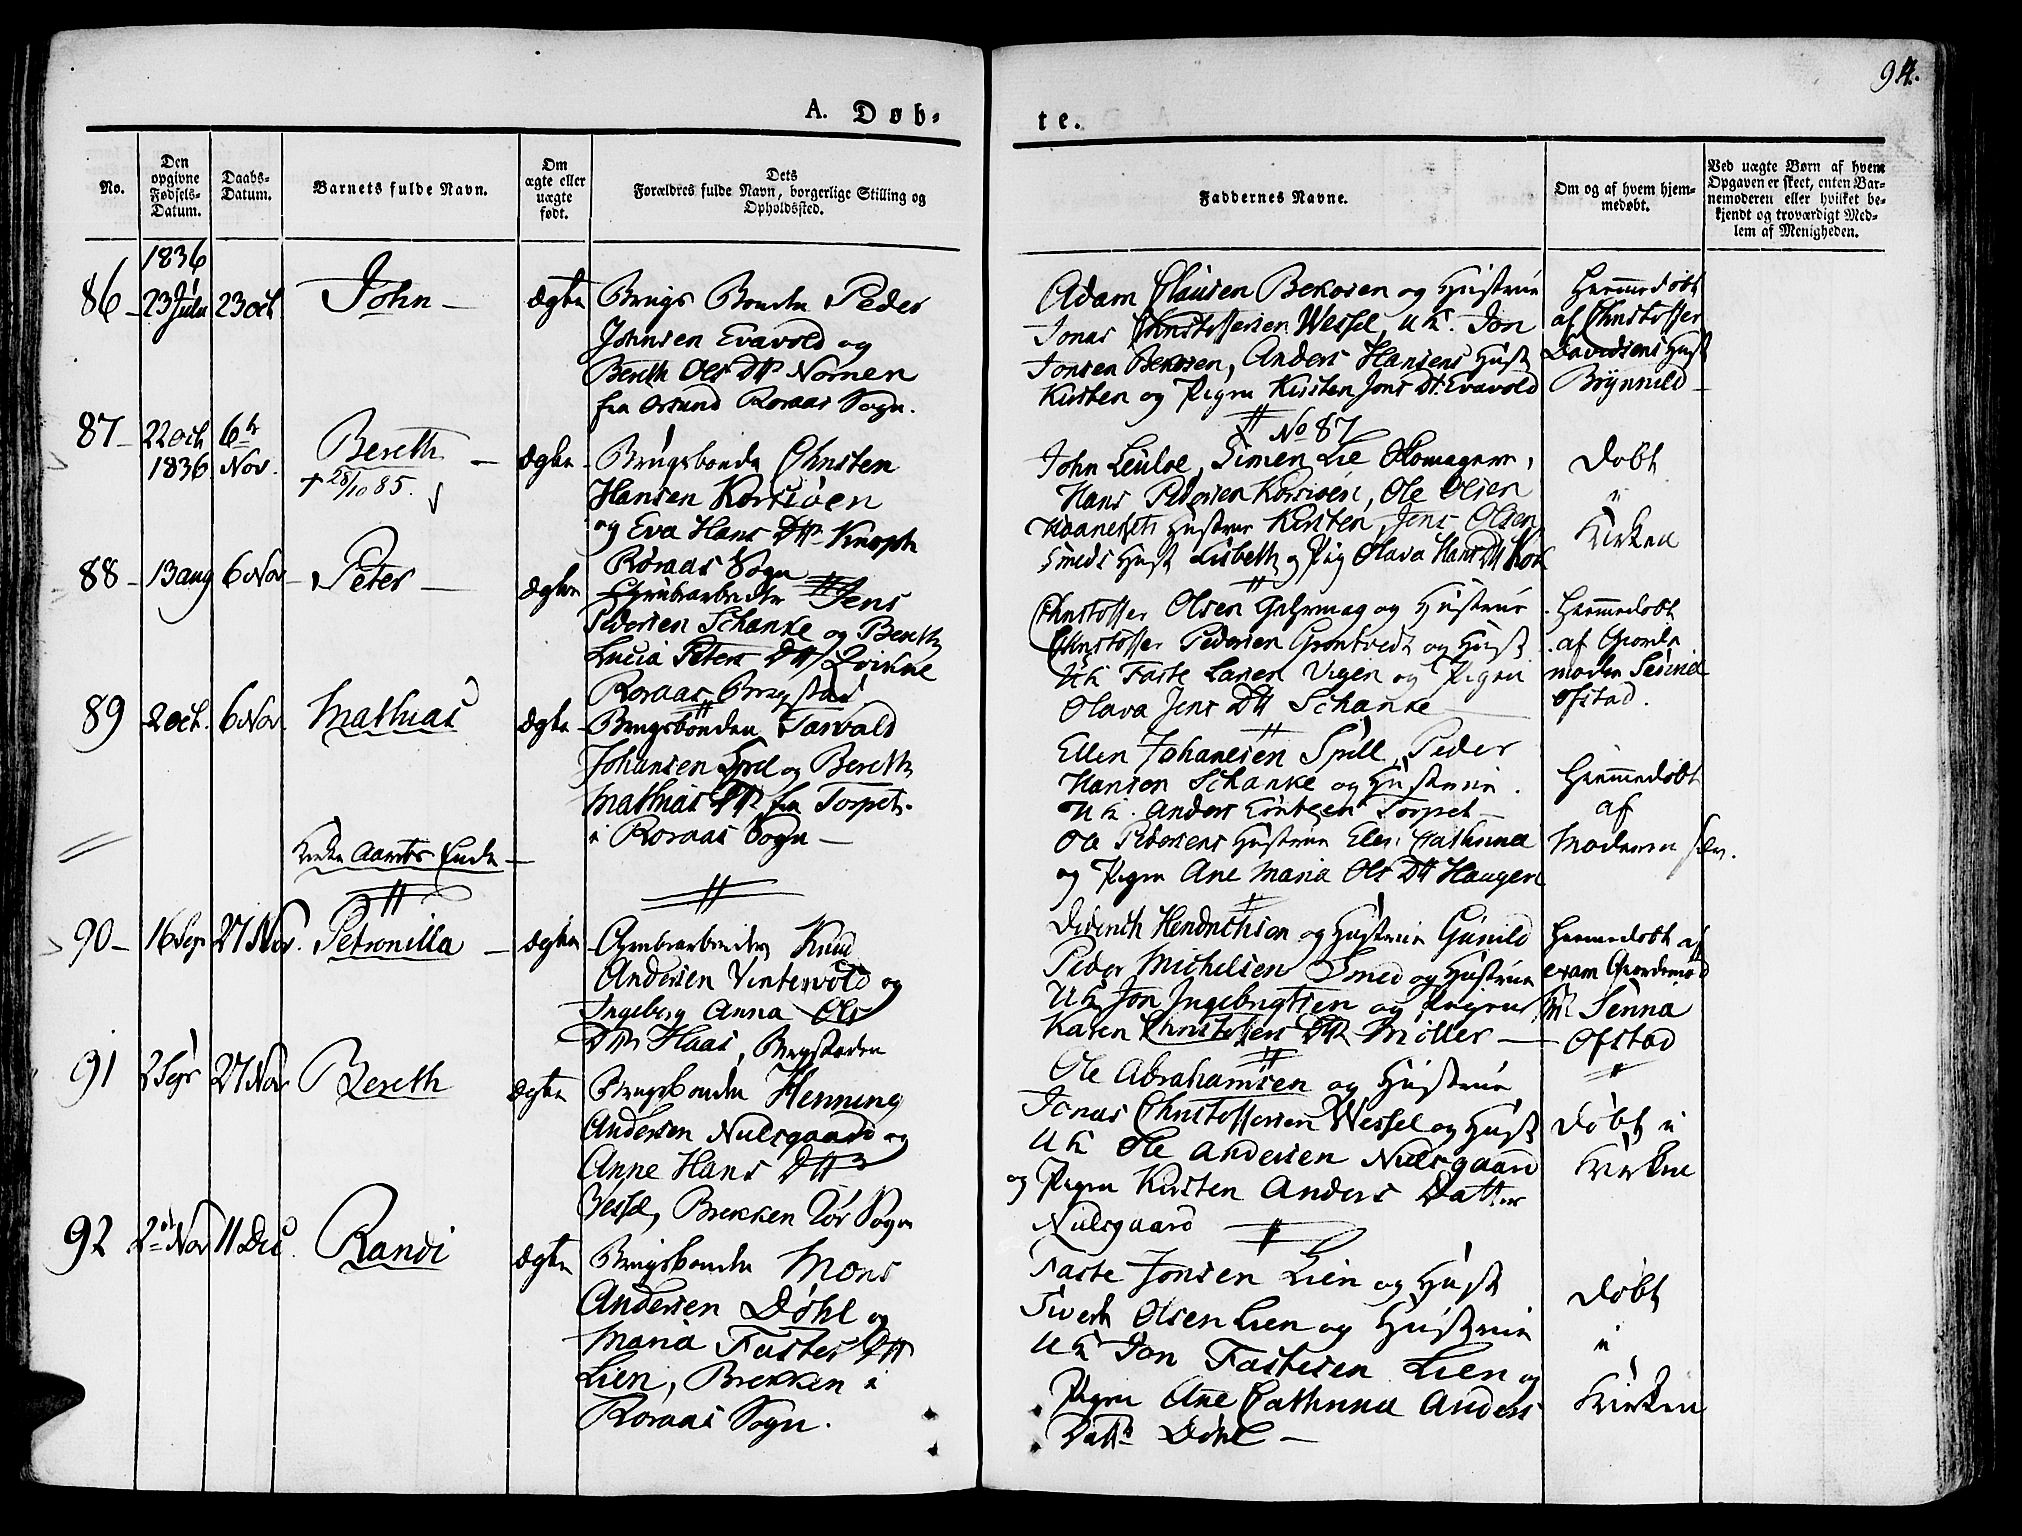 94.
A. Døb-
te.
No.
Den
opgivne
Fødsels-
Datum.
Daabs-
Datum.
Barnets fulde Navn.
Om
ægte eller
uægte
født.
Dets
Forældres fulde Navn, borgerlige Stilling og
Opholdssted.
Faddernes Navne.
Om og af hvem hjem-
medøbt.
Ved uægte Børn af hvem
Opgaven er skeet, enten Bar-
nemoderen eller hvilket be-
kjendt og troværdigt Med-
lem af Menigheden.
1836
86 - 23 Julii 23 oct John - ægte
Brugs Bonde Peder
Johnsen Evavold og
Bereth Ols Dtr
fra Orsund Roraas Sogn.
Adam Clausen Bekosen og Hustrue
Jonas Christoffersen Wessel, UK. Jon
Jonsen Bekosen, Anders Hansens Hust
Kirsten og Pigen Kirsten Jons Dt. Evavold
Hiemmedøbt
af Christoffer
Davidsens Hust
Brÿnnild -
87 - 22 oct 1836 6te Nov. Bereth - ægte
† 28/10 85.
Brugsbonde Christen
Hansen Korssøen
og Eva Hans Dtr Knoph
Røraas Sogn
No 87
John, Simen Lie
Hans Pedersen Korssøen, Ole Olsen
Hustrue Kirsten, Jens Olsen
Smeds Hust Lisbeth og Pig Olava Hans Dtr Kors
Døbt
i
Kirken
88 - 13 aug 6 Nov - Peter - ægte
Grubearbeider Jens
Pedersen Schanke og Bereth
Lucia Peters Dtr Qvikne
Roraas Bergstad
Christoffer Olsen og Hustrue
Christoffer Pedersen Grøntvedt og Hust
UK Faste Larsen Vigen og Pigen
Olava Jens Dtr Schanke
Hiemmedøbt
af Giorde
moder
Ofstad.
89 2 oct. 6 Nov. Mathias ægte
Brugsbonden Tarvald
Johansen og Bereth
Mathias Dtr fra Torpet
i Roraas Sogn -
Ellen Johanesen Spell, Peder
Hansen Schanke og Hustrue
UK. Anders Torpet -
Ole Pedersens Hustrue Elen Cathrina
og Pigen Ane Maria Ols Dtr Haugen
Hiemmedøbt
af
Moderen selv.
Kirke Aarets Ende -
90 - 16 Sepr 27 Nov. Petronilla - ægte
Grubearbeider Knud
Andersen Vintervold og
Ingeborg Anna Ols
Dtr Haas, Bergstaden
Diderich Hendrichsen og Hustrue Gunild
Peder Michelsen Smed og Hustrue
UK Jon Ingebrigtsen og Pigen
Karen Christoffers Dtr Møller -
Hiemmedøbt af
exam Giordemod
Senna
Ofstad
91 2 Sepr 27 Nov Bereth ægte
Brugsbonde Henning
Andersen Nulsgaard og
Anne Hans Dtr
Vessel, Brekken Rør Sogn
Ole Abrahamsen og Hustrue
Jonas Christoffersen Wessel og Hust
UK Ole Andersen Nulsgaard
og Pigen Kirsten Anders Datter
Nulsgaard
Døbt i
Kirken
92 2 Nov 11 Dec. Randi ægte
Brugsbonde Mons
Andersen Døhl og
Maria Fastes Dtr
Lien, Brekken i
Roraas Sogn.
Faste Jonsen Lien og Hust
Sivert Olsen Lien og Hustrue
UK Jon Fastesen Lien og
Pigen Ane Cathrina Anders
Datter Døhl -
Døbt
i
Kirken